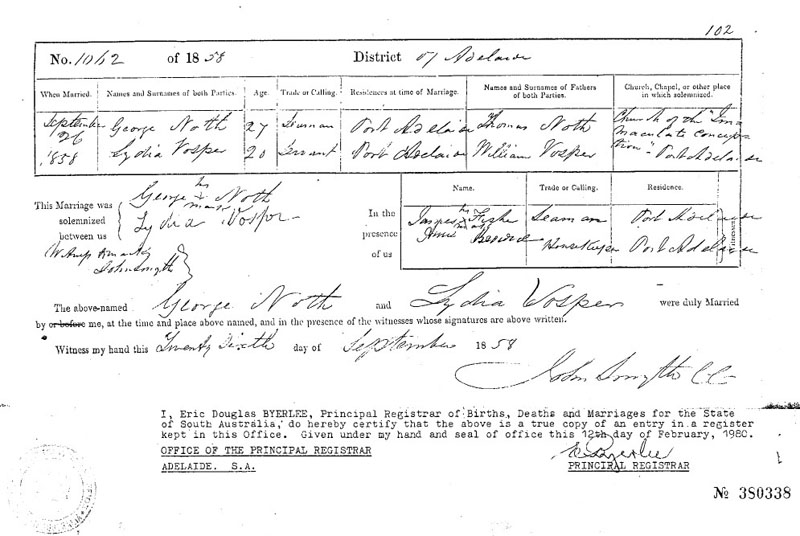 102
No. 1042 of 1858 District of Adelaide
When Married. Names and Surnames of both Parties. Age. Trade or Calling. Residences at time of Marriage. Names and Surnames of Fathers of both Parties. Church, Chapel, or other place in which solemnized.
September George Noth 27 Seaman Port Adelaide Thomas Noth Church of the "Im
26 maculate Concep
1858 Lydia Vosper 20 Servant Port Adelaide William Vosper tion" Port Adelaide
This Marriage was solemnized between us
George his x mark Noth
Lydia Vosper
John Smyth
In the presence of us
Name. Trade or Calling. Residence.
his mark Seaman Port Adelaide
Housekeeper Port Adelaide
Witnesses
The above-named George Noth and Lydia Vosper were duly Married
by or before me, at the time and place above named, and in the presence of the witnesses whose signatures are above written.
Witness my hand this Twenty Sixth day of September 1858
John Smyth CC
I, Eric Douglas BYERLEE, Principal Registrar of Births, Deaths and Marriages for the State
of South Australia, do hereby certify that the above is a true copy of an entry in a register
kept in this Office. Given under my hand and seal of office this 12th day of February, 1980.
OFFICE OF THE PRINCIPAL REGISTRAR
ADELAIDE. S.A.
E Byerlee
PRINCIPAL REGISTRAR
№ 380338